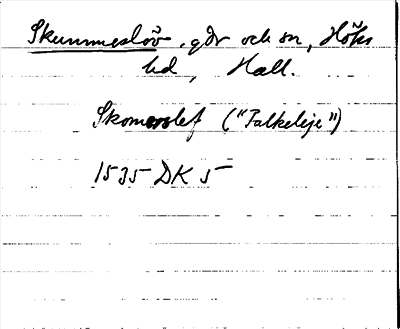 Skummeslöv, gdr och sn, Höks
hd, Hall.
Skomerslef ("Falkeleje")
1535 DK 5